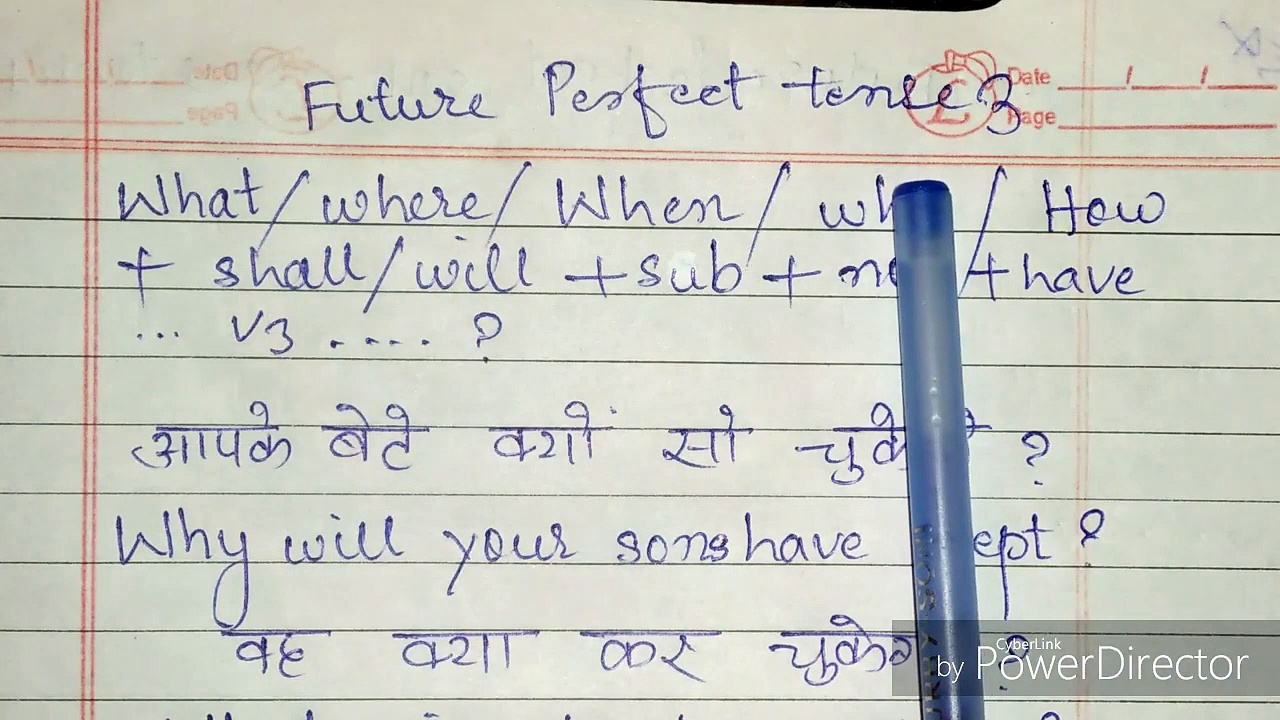 Future Perfect tense 3
Date / /
Page
What/where/When/ /How
+ shall/will + sub + + have
... V3 .... ?
आपके बेटे क्यों सो ?
Why will your sons have ?
वह क्या कर
CyberLink
by PowerDirector